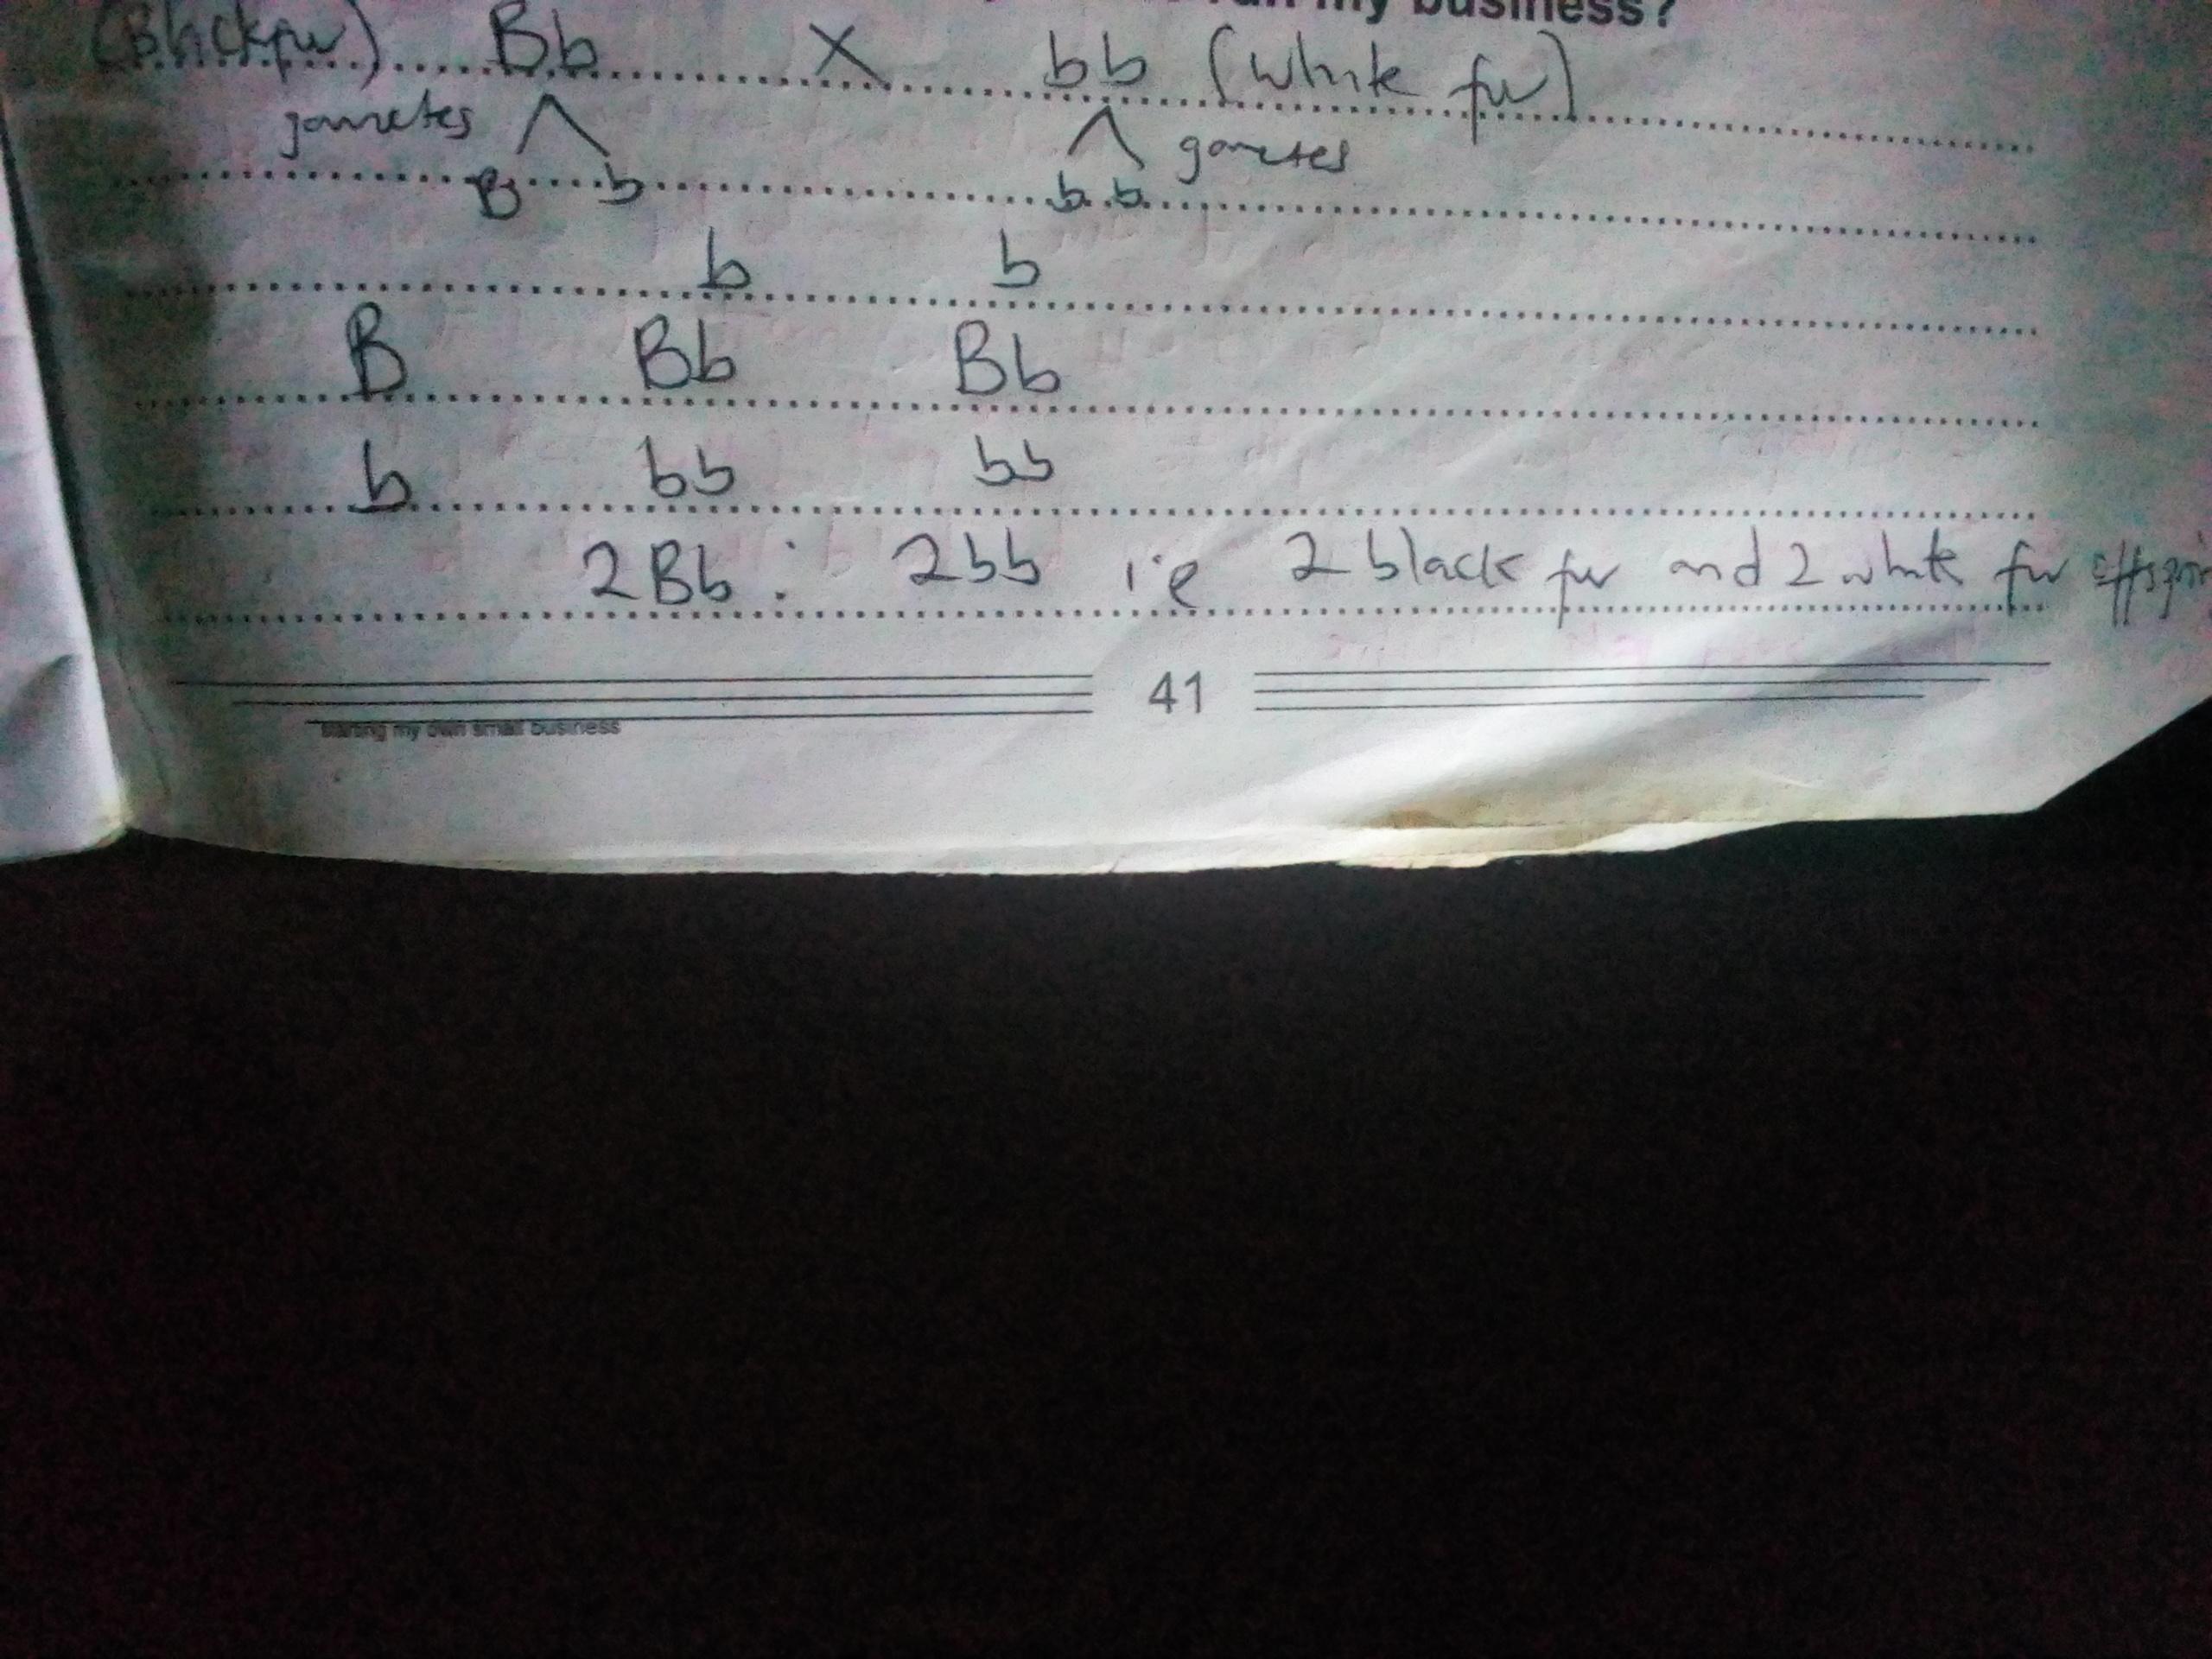 my business?
(Blackfur) Bb X bb (white fur)
gametes gametes
B b b b
b b
B Bb Bb
b bb bb
2Bb : 2bb i.e 2 black fur and 2 white fur
41
starting my own small business